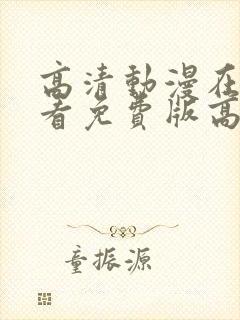 高清動漫在
看免費版高
童振源